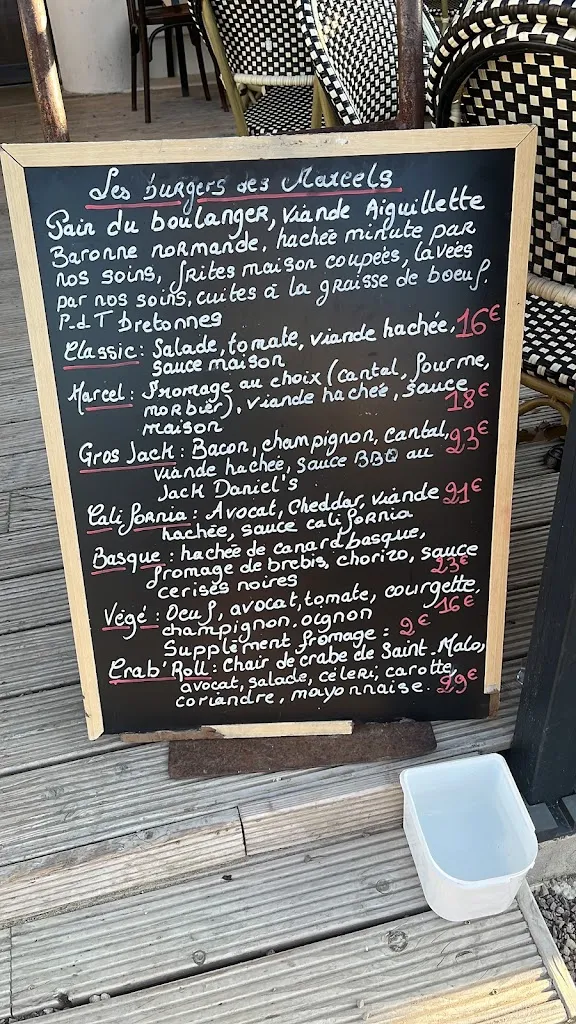 Les burgers des Marcels
Pain du boulanger, viande Aiguillette
Baronne normande, hachée minute par
nos soins, frites maison coupées, lavées
par nos soins, cuites à la graisse de boeuf.
P.d T bretonnes
Classic : Salade, tomate, viande hachée, 16€
sauce maison
Marcel : Fromage au choix (cantal, fourme,
morbier), viande hachée, sauce
maison 18€
Gros Jack : Bacon, champignon, cantal, 23€
viande hachée, sauce BBQ au
Jack Daniel's
California : Avocat, Cheddar, viande 21€
hachée, sauce california
Basque : hachée de canard basque,
fromage de brebis, chorizo, sauce
cerises noires 23€
Végé : Oeuf, avocat, tomate, courgette,
champignon, oignon 16€
Supplément fromage : 2€
Crab'Roll : Chair de crabe de Saint-Malo,
avocat, salade, céleri, carotte,
coriandre, mayonnaise. 29€